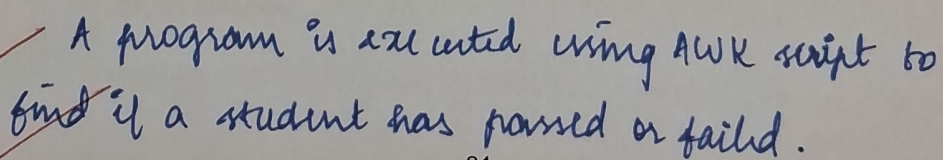 A program is executed using AWK script to
find if a student has passed or failed.